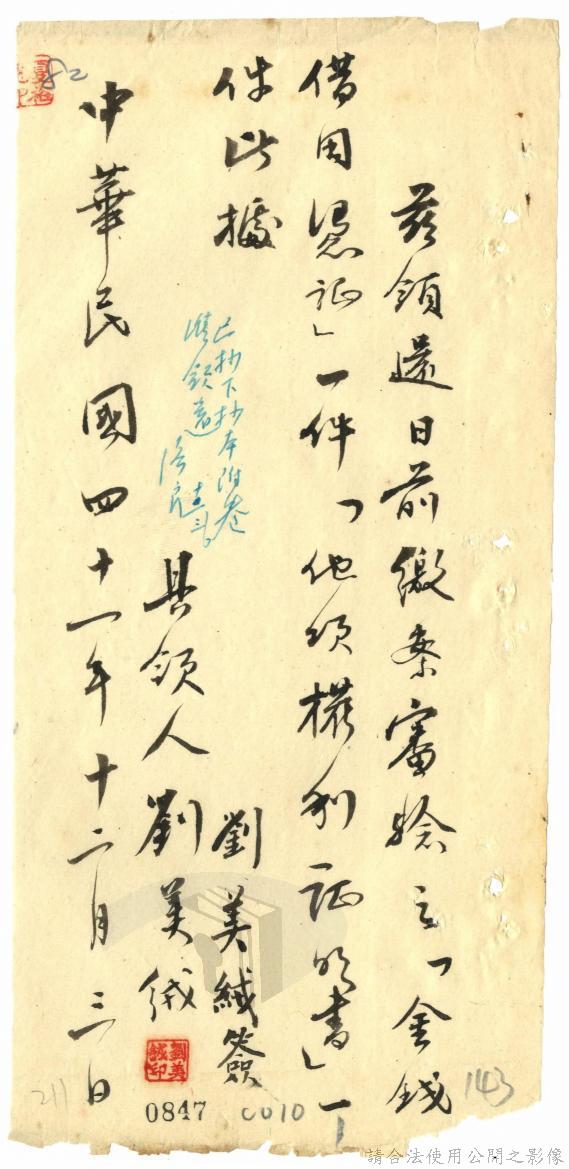 茲領還日前繳案審驗之「金錢
借用憑证」一件「他項權利证明書」一
件此據
已抄下抄本附卷
准領還
具領人劉美絨
劉美絨簽
中華民國四十一年十二月三日
劉美絨印
82
143
211
0847
0010
請合法使用公開之影像